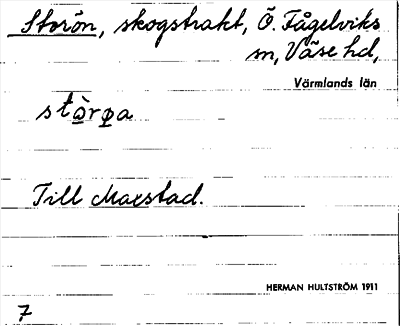 Storön, skogstrakt, Ö. Fågelviks
sn, Väse hd,
Värmlands län
Till Maxstad.
HERMAN HULTSTRÖM 1911
7